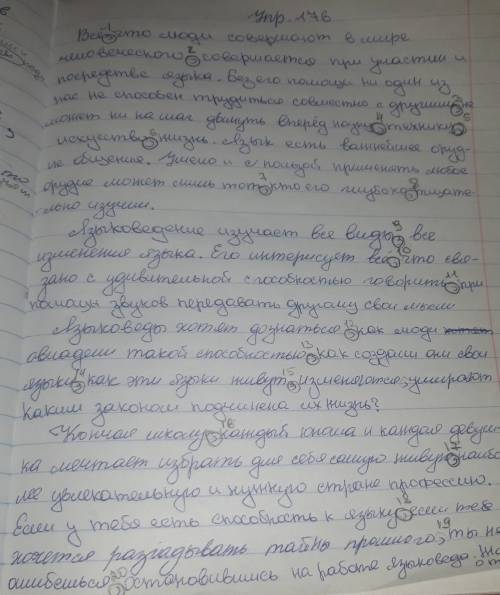 Упр. 176
Всё, что люди совершают в мире
человеческого, совершается при участии и
посредстве языка. Без его помощи ни один из
нас не способен трудиться совместно с другими, не
может ни на шаг двинуть вперёд науку, технику,
искусство, жизнь. Язык есть важнейшее оруд-
ие общение. Умело и с пользой применять любое
орудие может лишь тот, кто его глубоко, тщате-
льно изучил.
Языковедение изучает все виды, все
изменения языка. Его интересует всё, что свя-
зано с удивительной способностью говорить, при
помощи звуков передавать другому свои мысли
Языковеды хотят дознаться, как люди
овладели такой способностью, как создали они свои
языки, как эти языки живут, изменяются, умирают
Каким законом подчинена их жизнь?
Кончая школу, каждый юноша и каждая девуш
ка мечтает избрать для себя самую живую, наибо
лее увлекательную и нужную стране профессию.
Если у тебя есть способность к языку, если тебе
хочется разгадывать тайны прошлого, ты не
ошибёшься, остановившись на работе языковеда.